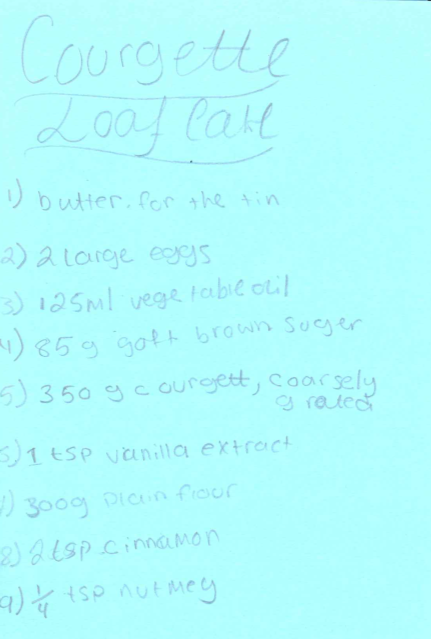 Courgette
Loaf Cake
1) butter. for the tin
2) 2 large eggs
3) 125ml vegetable oil
4) 85g soft brown suger
5) 350 g courgett, coarsely
grated
6) 1 tsp vanilla extract
7) 300g plain flour
8) 2 tsp cinnamon
9) 1/4 tsp nutmeg